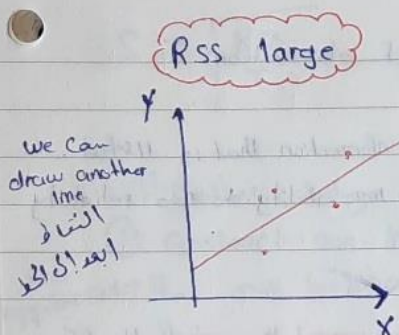 RSS large
Y
we can
draw another
line
النقاط
ابعد الى الخط
X